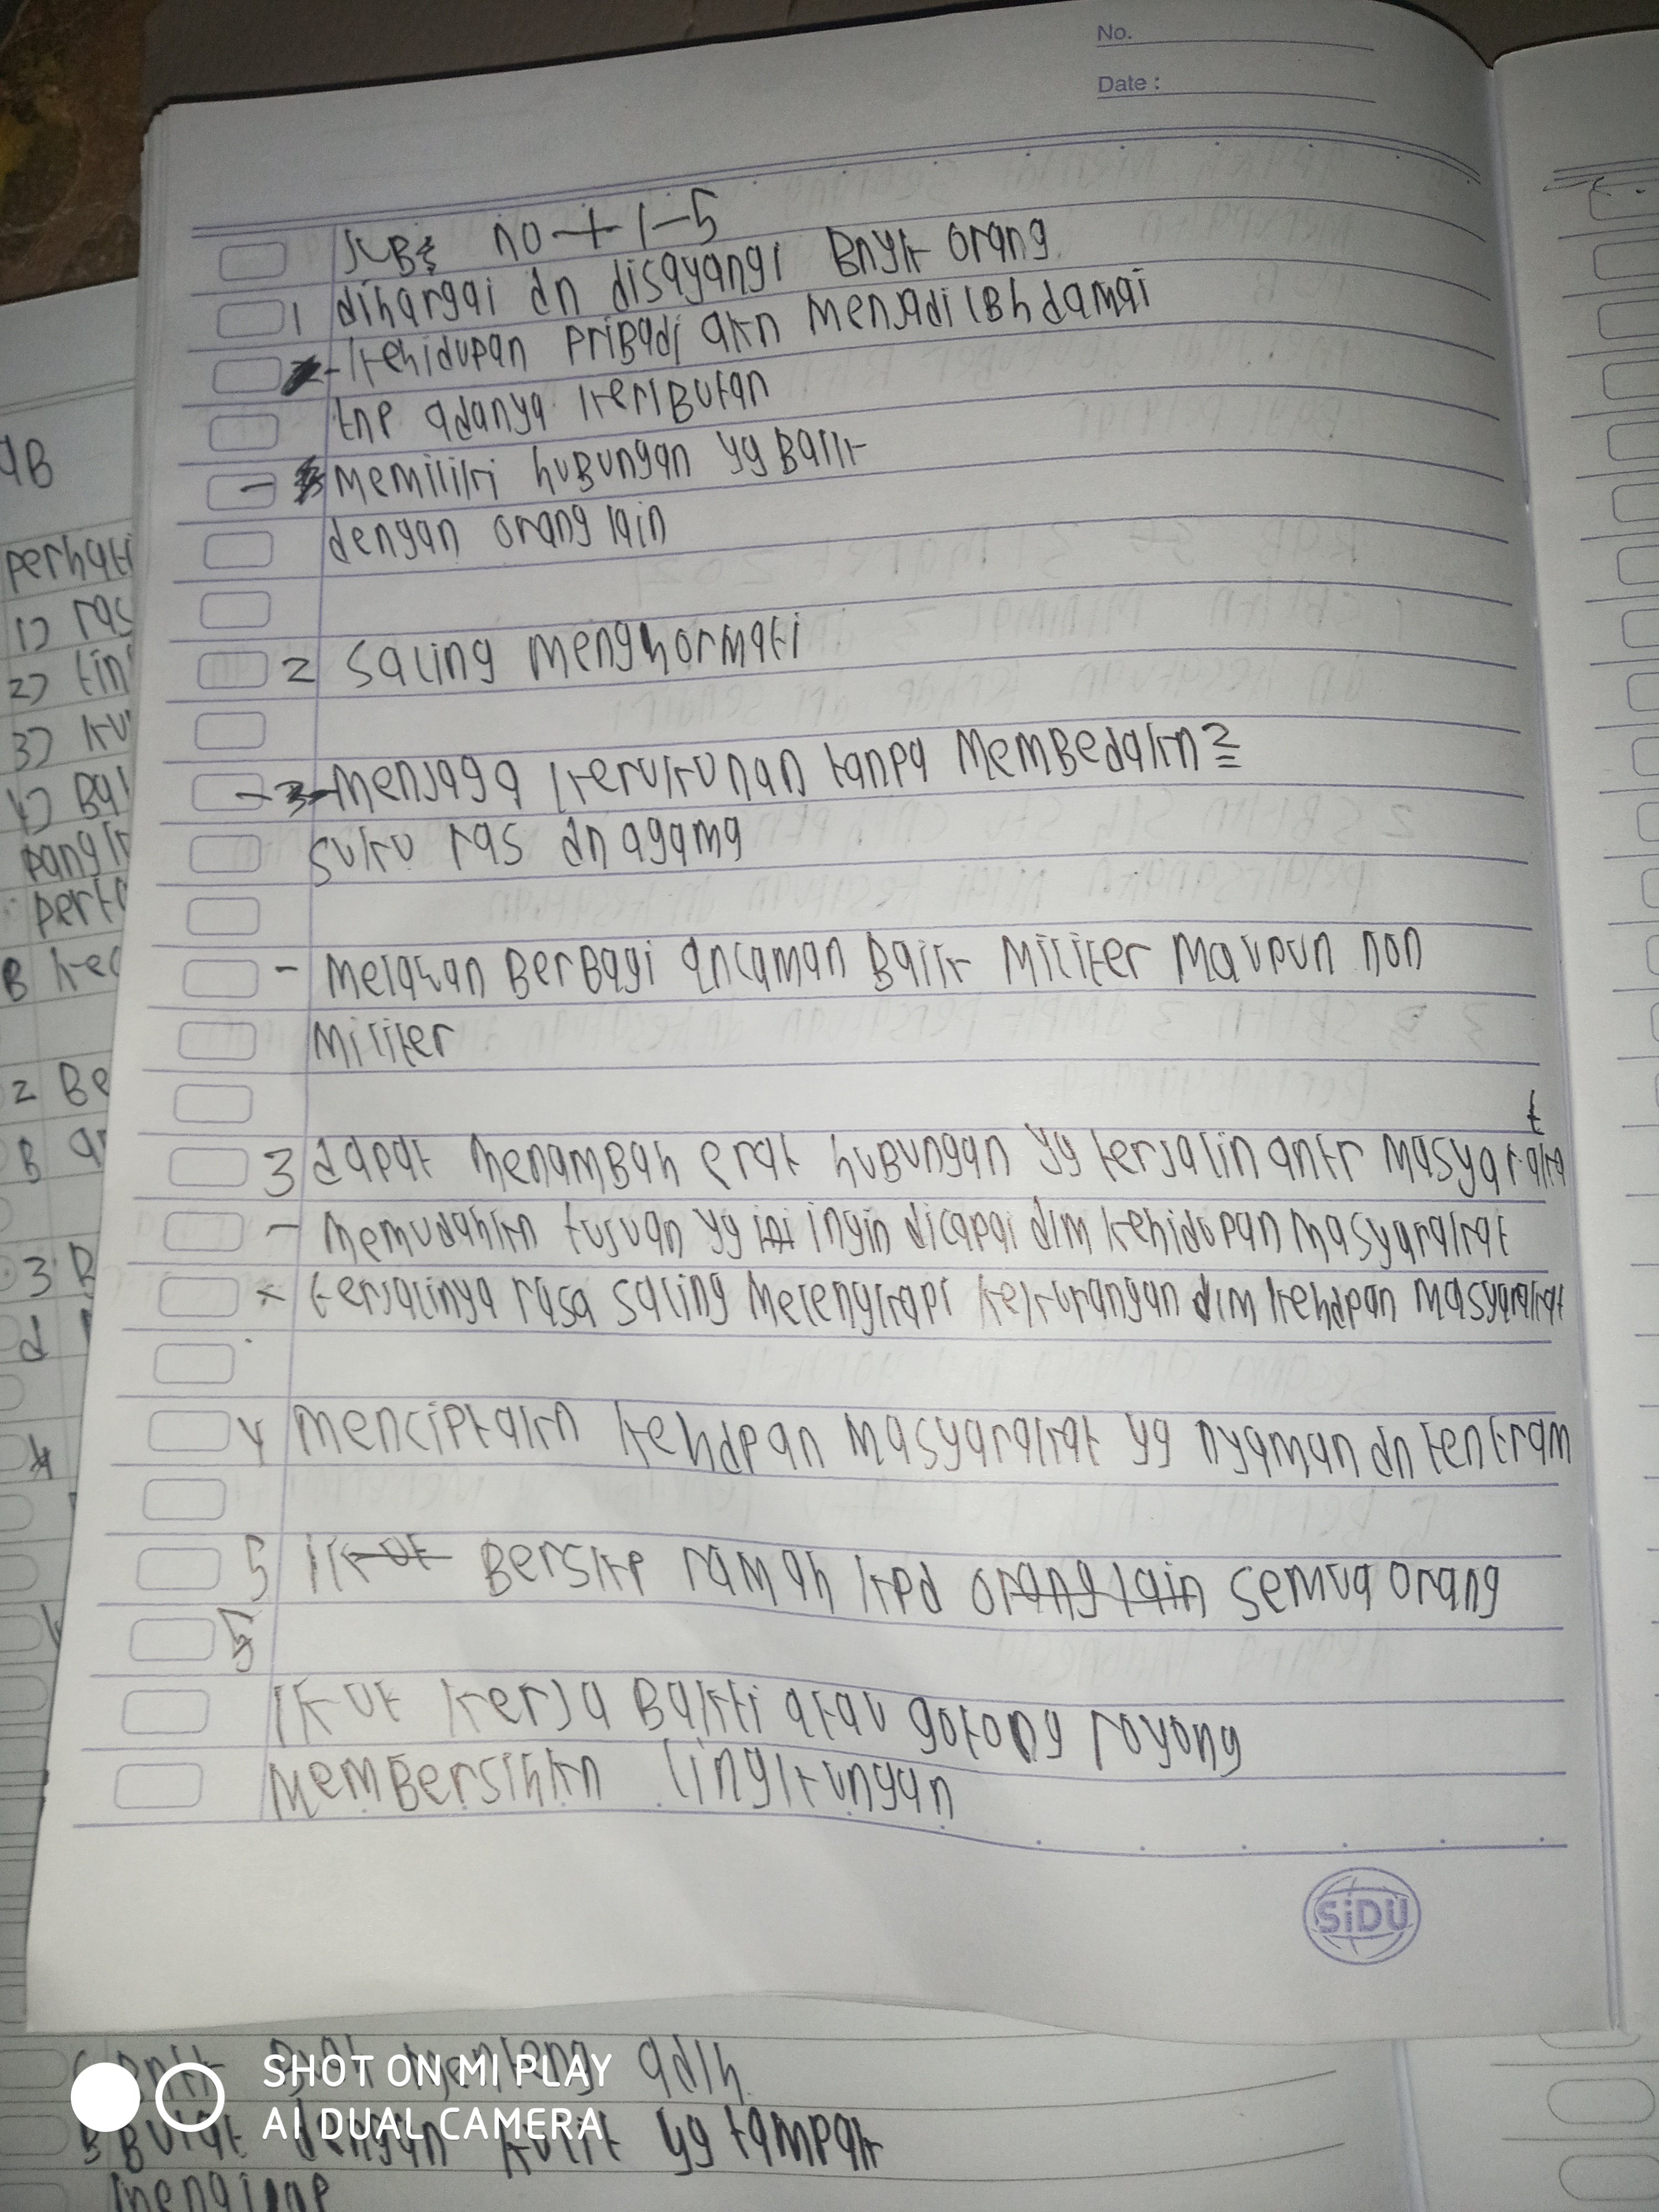 No.
Date :
no + 1-5
1 dihargai dn disayangi Bnyk orang
- kehidupan pribadi akn menjadi lBh damai
tnp adanya keriButan
- memiliki huBungan yg Baik
dengan orang lain
2 saling menghormati
- menjaga kerukunan tanpa MemBedakn2
suku ras dn agama
- melawan BerBagi ancaman Baik Militer Maupun non
Militer
3 dapat menamBah erat huBungan yg terjalin antr Masyarakat
- memudahkn tujuan yg ingin dicapai dlm kehidupan masyarakat
- terjalinya rasa saling Melengkapi kekurangan dlm kehdpan Masyarakat
4 menciptakn kehdpan Masyarakat yg nyaman dn tentram
5 Berskp ramah kpd semua orang
Ikut kerja Bakti atau gotong royong
MemBersihkn lingkungan
SiDU
aB
perhati
1) ras
2) tin
3) ku
4) Ba
pangk
B
2 Be
B
3 B
d
adlh
Bulat dengan kulit yg tampak
SHOT ON MI PLAY
AI DUAL CAMERA